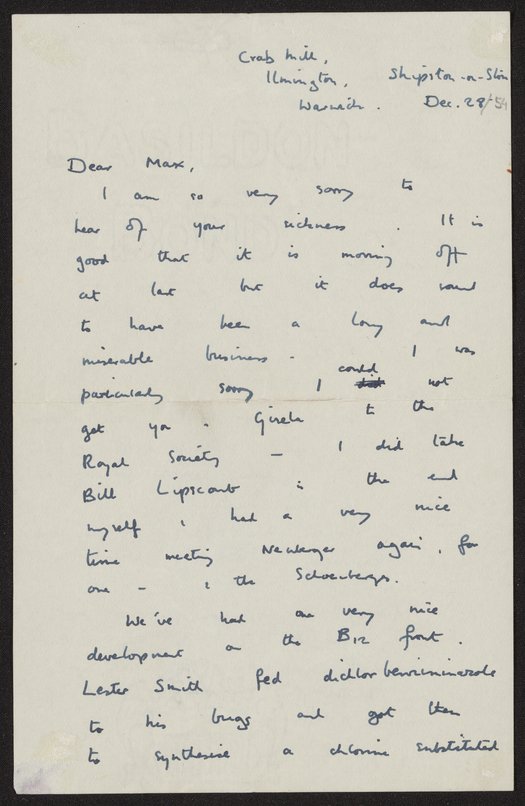 Crab Mill,
Ilmington, Shipston-on-Stour
Warwick. Dec. 28/54
Dear Max,
I am so very sorry to
hear of your sickness. It is
good that it is moving off
at last but it does sound
to have been a long and
miserable business. I was
particularly sorry I could not
get you & Gisela to the
Royal Society – I did take
Bill Lipscomb in the end
myself & had a very nice
time meeting Neuberger again, for
one – & the Schoenbergs.
We've had one very nice
development on the B12 front.
Lester Smith fed dichlorbenziminazole
to his bugs and got them
to synthesise a chlorine substituted